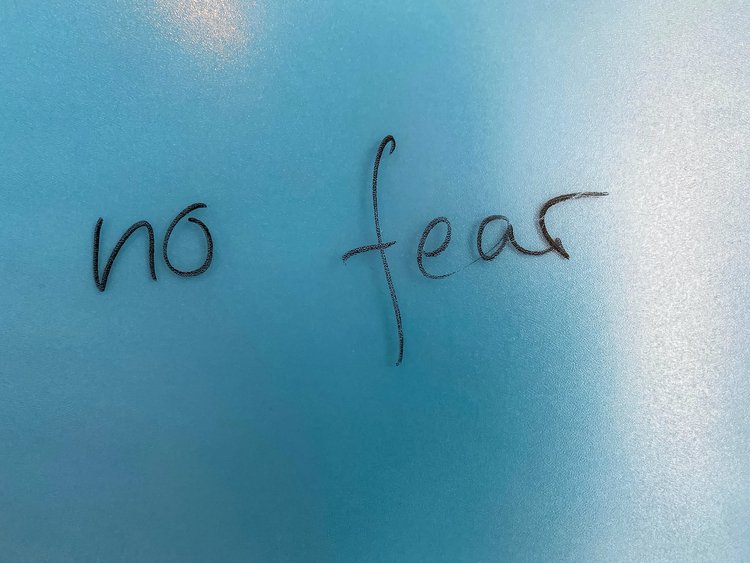 no fear